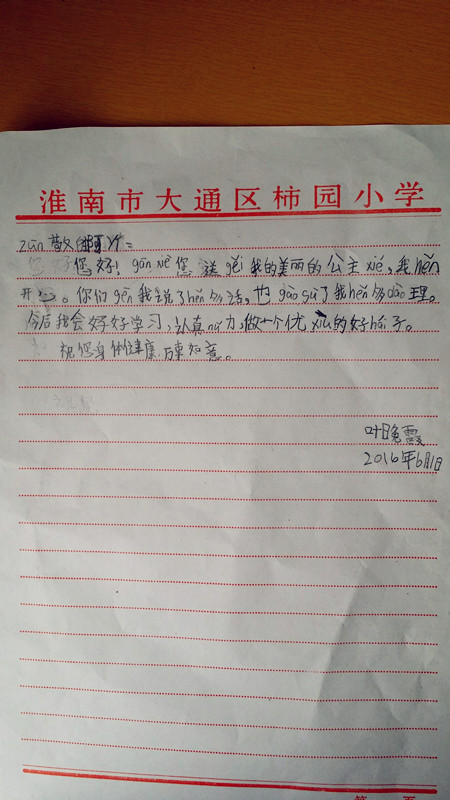 淮南市大通区柿园小学
zūn敬
您好！gǎn xiè您送gěi我的美丽的公主xié，我hěn
开心。你们gēn我说了hěn多话，也gào sù了我hěn多dào理。
今后我会好好学习，认真nǔ力，做一个优xiù的好hái子。
祝您身体健康，万事如意。
叶晚霞
2016年6月1日